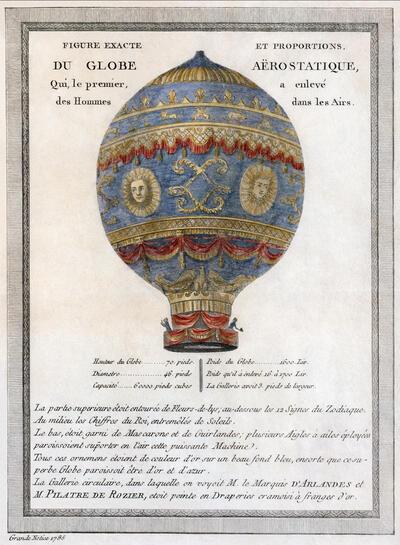 FIGURE EXACTE ET PROPORTIONS,
DU GLOBE AËROSTATIQUE,
Qui, le premier, a enlevé
des Hommes dans les Airs.
Hauteur du Globe..........70. pieds. Poids du Globe..........1600. Liv.
Diametre..........46. pieds Poids qu'il à enlevé 16 à 1700 Liv.
Capacité.....60000 pieds cubes La Gallerie avoit 3. pieds de largeur.
La partie superieure étoit entourée de Fleurs-de-lys, au-dessous les 12 Signes du Zodiaque.
Au milieu les Chiffres du Roi, entremêlés de Soleils.
Le bas, étoit garni de Mascarons et de Guirlandes; plusieurs Aigles à aîles éployées
paroissoient suporter en l'air cette puissante Machine.
Tous ces ornemens étoient de couleur d'or sur un beau fond bleu, ensorte que ce su-
perbe Globe paroissoit être d'or et d'azur.
La Gallerie circulaire, dans laquelle on voyoit M. le Marquis D'ARLANDES et
M. PILATRE DE ROZIER, etoit peinte en Draperies cramoisi à franges d'or.
Grande Notice 1786